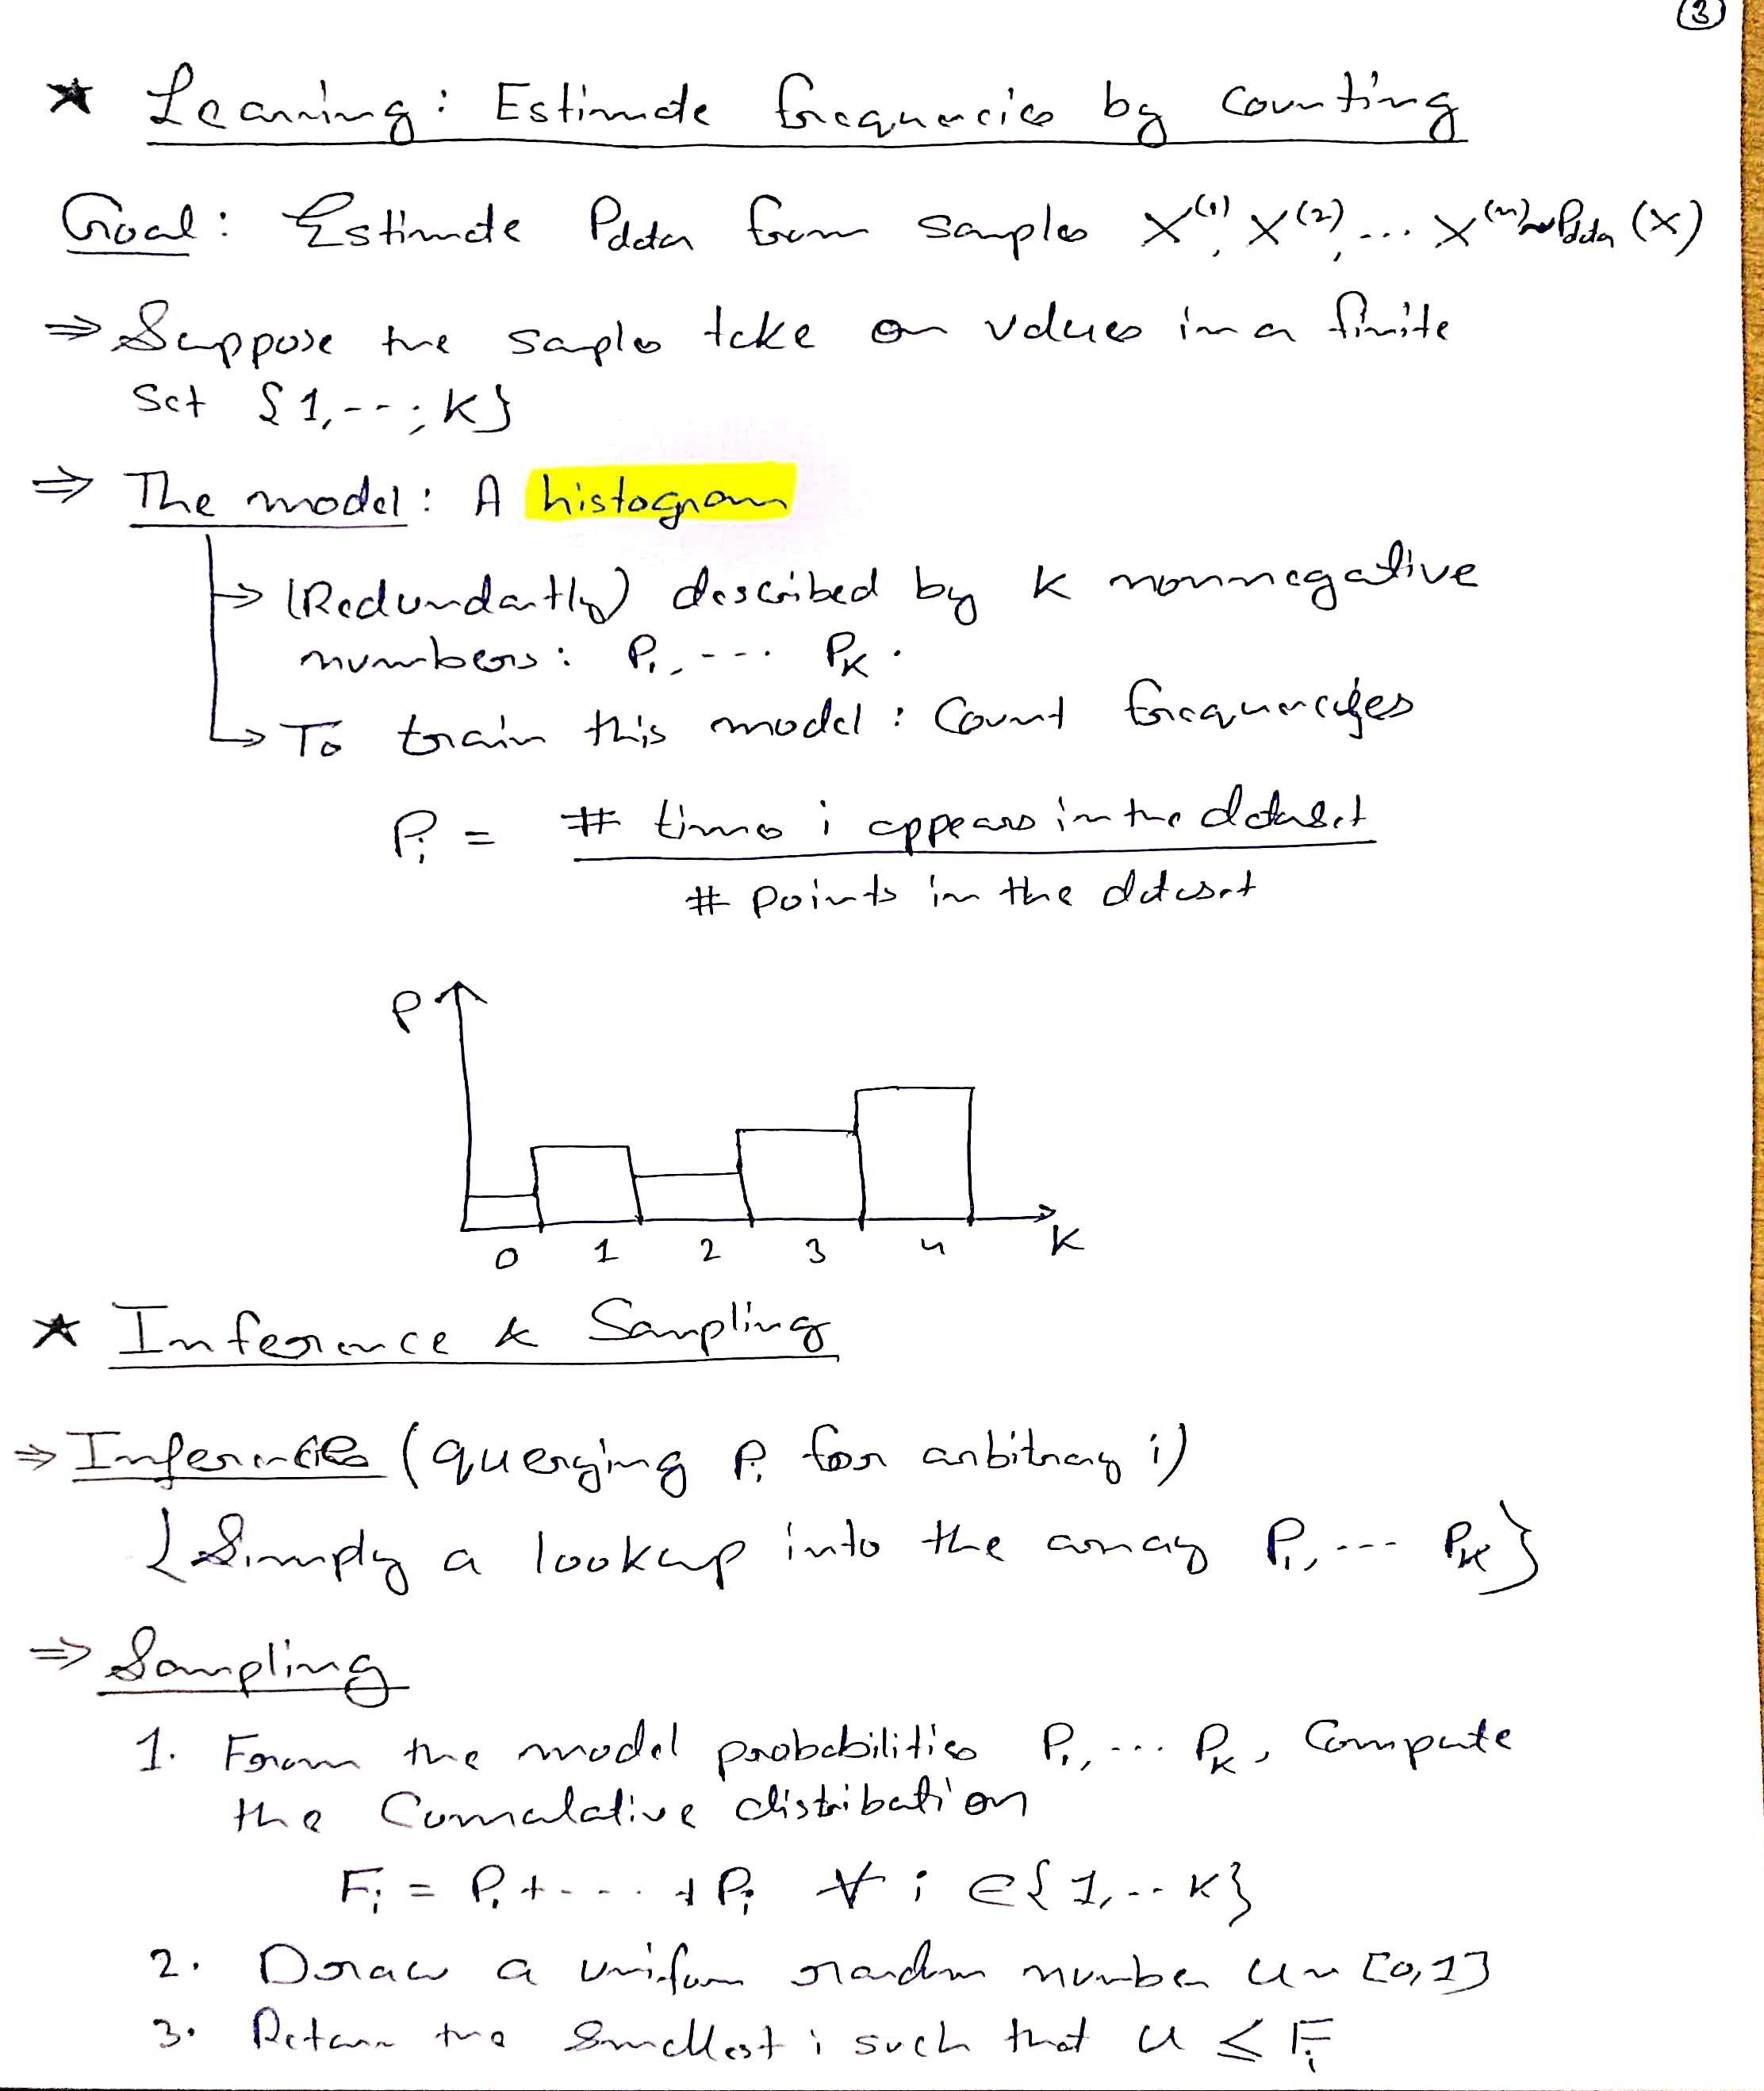 3
★ Learning: Estimate frequencies by counting
Goal: Estimate Pdata from samples X⁽¹⁾, X⁽²⁾, ... X⁽ⁿ⁾ ~ Pdata (X)
⇒ Suppose the saples take on values in a finite
Set {1, --, K}
⇒ The model: A histogram
→ (Redundantly) described by K nonnegative
numbers: P₁, --- Pₖ.
→ To train this model: Count frequencies
Pᵢ = # times i appears in the dataset
# points in the dataset
P
0 1 2 3 4 K
★ Inference & Sampling
⇒ Inference (querying Pᵢ for arbitrary i)
{Simply a lookup into the array P₁, --- Pₖ}
⇒ Sampling
1. From the model probabilities P₁, ... Pₖ, Compute
the Cumulative distribution
Fᵢ = P₁ + ---- + Pᵢ ∀ i ∈ {1, -- K}
2. Draw a uniform random number u ~ [0, 1]
3. Return the smallest i such that u ≤ Fᵢ